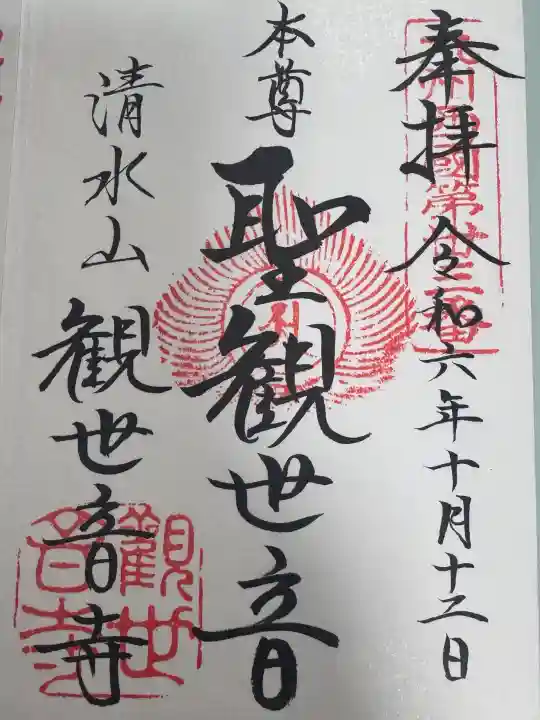 奉拝 令和六年十月十二日
本尊 聖観世音
清水山 観世音寺
觀世音寺